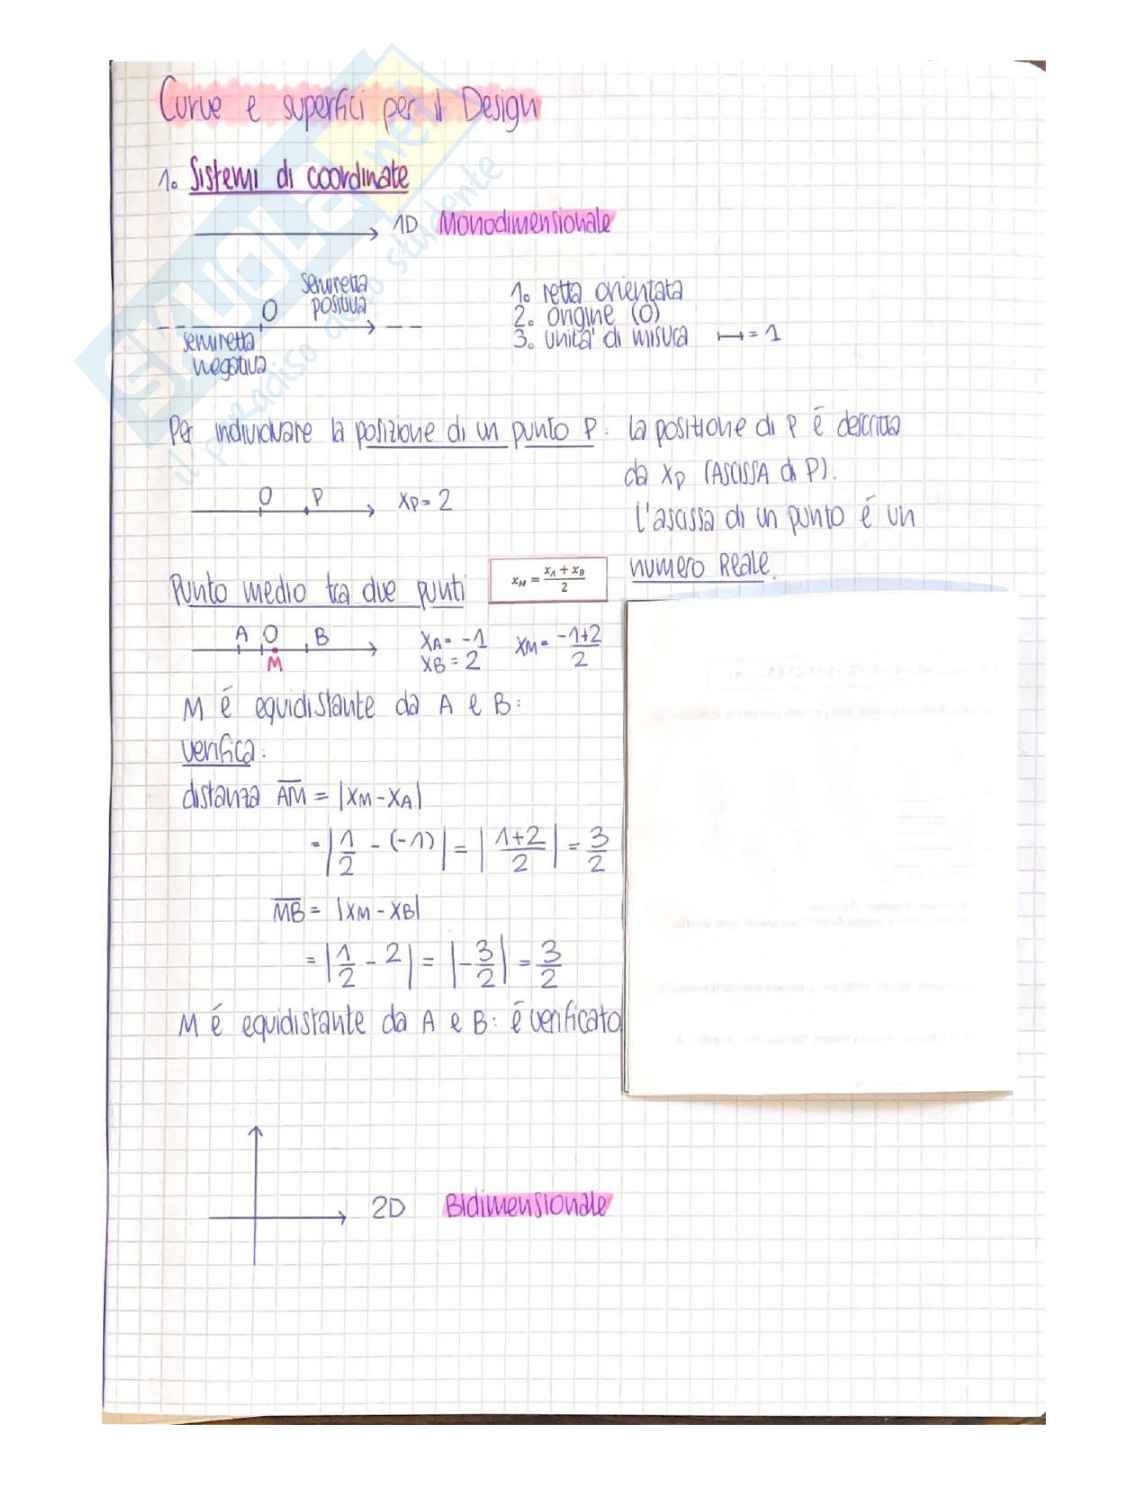 Curve e superfici per il Design
1. Sistemi di coordinate
1D Monodimensionale
semiretta
positiva
O
semiretta
negativa
1. retta orientata
2. origine (O)
3. unità di misura = 1
Per individuare la posizione di un punto P: la posizione di P é descritta
da xP (ASCISSA di P).
O P xP = 2
L'ascissa di un punto é un
numero Reale.
Punto medio tra due punti
xM = (xA + xB)/2
A O B
M
xA = -1
xB = 2
xM = (-1+2)/2
M é equidistante da A e B:
verifica:
distanza AM = |xM - xA|
= |1/2 - (-1)| = |(1+2)/2| = 3/2
MB = |xM - xB|
= |1/2 - 2| = |-3/2| = 3/2
M é equidistante da A e B: é verificato
2D Bidimensionale
SKUOLA.net
il paradiso dello studente